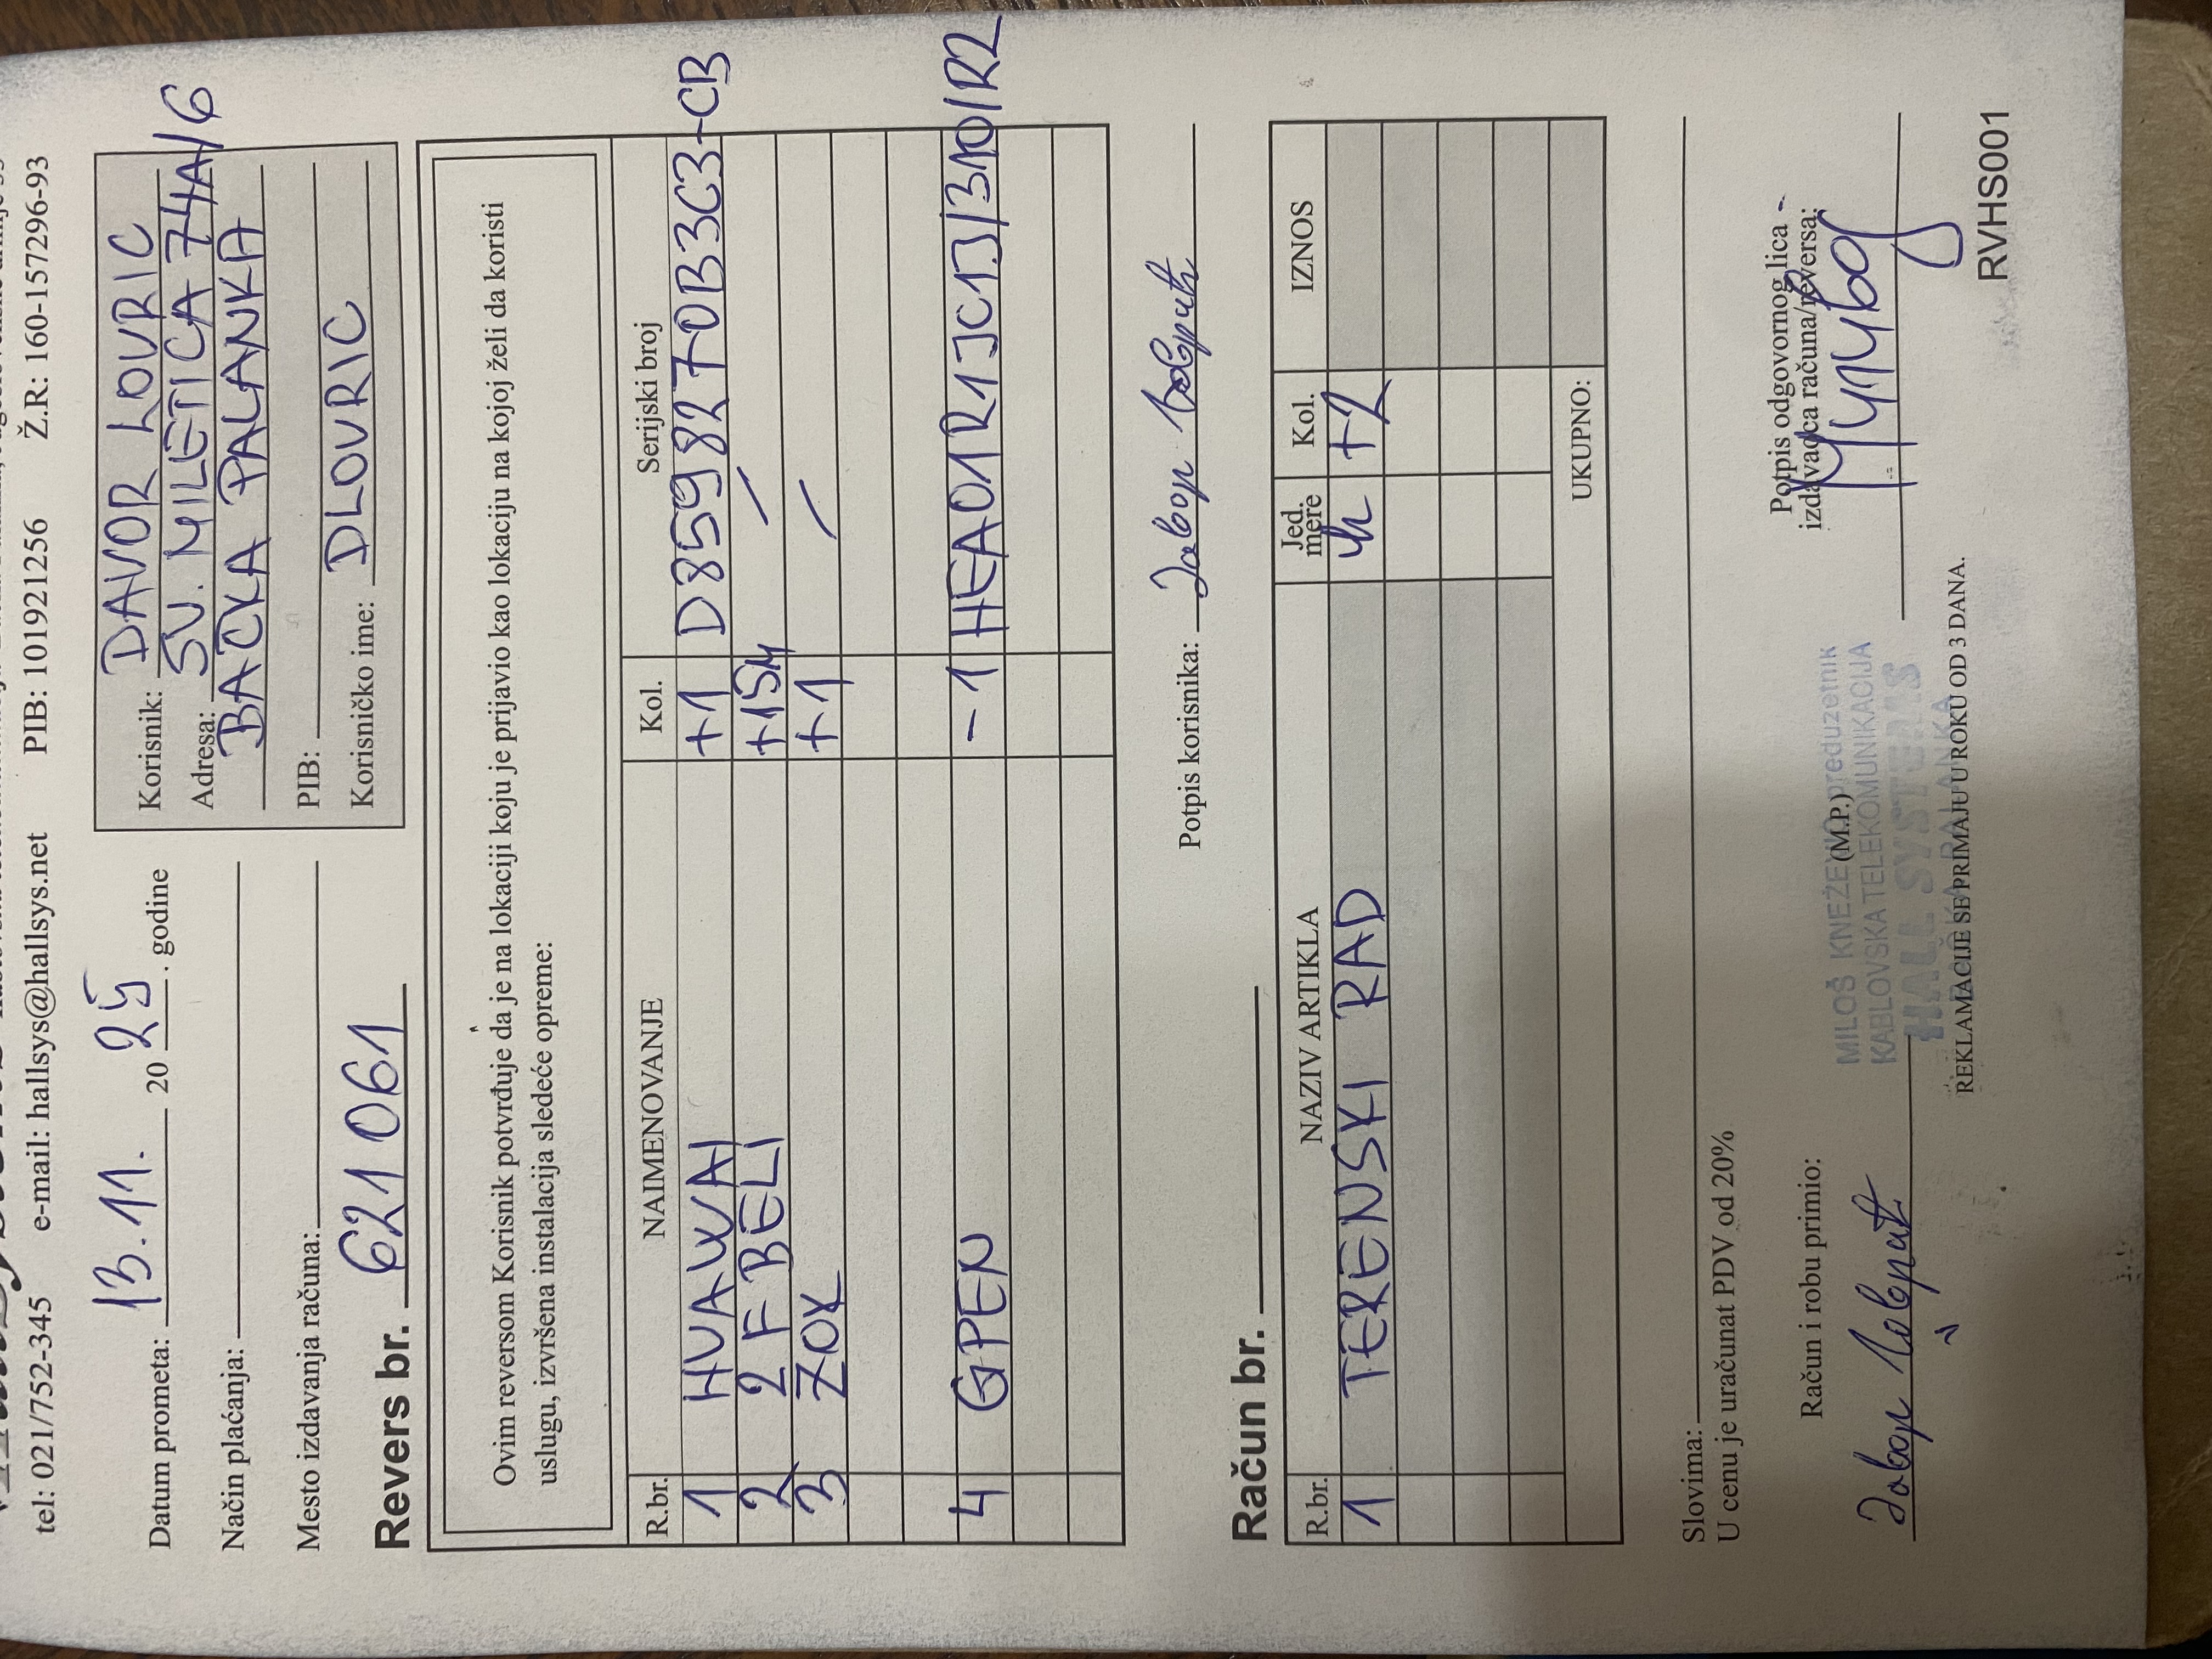 tel: 021/752-345 e-mail: hallsys@hallsys.net PIB: 101921256 Ž.R: 160-157296-93
Datum prometa: 13.11. 2025. godine
Način plaćanja:
Mesto izdavanja računa:
Korisnik: DAVOR LOVRIC
Adresa: SV. MILETICA 74A/6
BACKA PALANKA
PIB:
Korisničko ime: DLOVRIC
Revers br. 621061
Ovim reversom Korisnik potvrđuje da je na lokaciji koju je prijavio kao lokaciju na kojoj želi da koristi
uslugu, izvršena instalacija sledeće opreme:
R.br. NAIMENOVANJE Kol. Serijski broj
1 HUAWAI +1 D859827OB3C3-CB
2 2F BELI +15M /
3 ZOK +1 /
4 GPEN -1 HEA01R1JC13/310/R2
Potpis korisnika: Давор Ловрић
Račun br.
R.br. NAZIV ARTIKLA Jed. mere Kol. IZNOS
1 TERENSKI RAD h +2
UKUPNO:
Slovima:
U cenu je uračunat PDV od 20%
Račun i robu primio:
Potpis odgovornog lica -
izdavaoca računa/reversa:
Давор Ловрић
(M.P.)
MILOŠ KNEŽEV preduzetnik
KABLOVSKA TELEKOMUNIKACIJA
HALL SYSTEMS
BAČKA PALANKA
REKLAMACIJE SE PRIMAJU U ROKU OD 3 DANA.
RVHS001